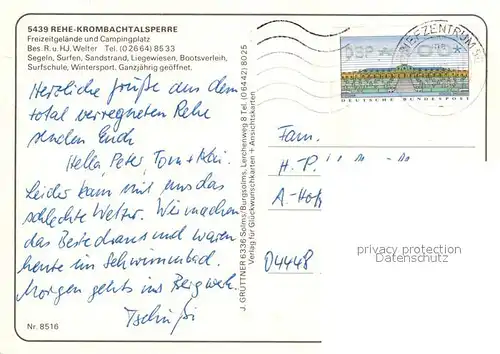 5439 REHE-KROMBACHTALSPERRE
Freizeitgelände und Campingplatz
Bes. R. u. HJ. Welter Tel. (0 26 64) 85 33
Segeln, Surfen, Sandstrand, Liegewiesen, Bootsverleih,
Surfschule, Wintersport. Ganzjährig geöffnet.
Herzliche Grüße aus dem
total verregneten Rehe
senden Euch
Hella, Peter, Tom + Kai.
Leider kam mit uns das
schlechte Wetter. Wir machen
das Beste draus und waren
heute im Schwimmbad.
Morgen gehts ins Bergwerk.
Tschüßi
Nr. 8516
J. GRÜTTNER 6336 Solms/Burgsolms, Lerchenweg 8 Tel. (0 64 42) 80 25
Verlag für Glückwunschkarten + Ansichtskarten
DBP
DEUTSCHE BUNDESPOST
BRIEFZENTRUM
Fam.
H. P.
A.-Hof
04448
privacy protection
Datenschutz